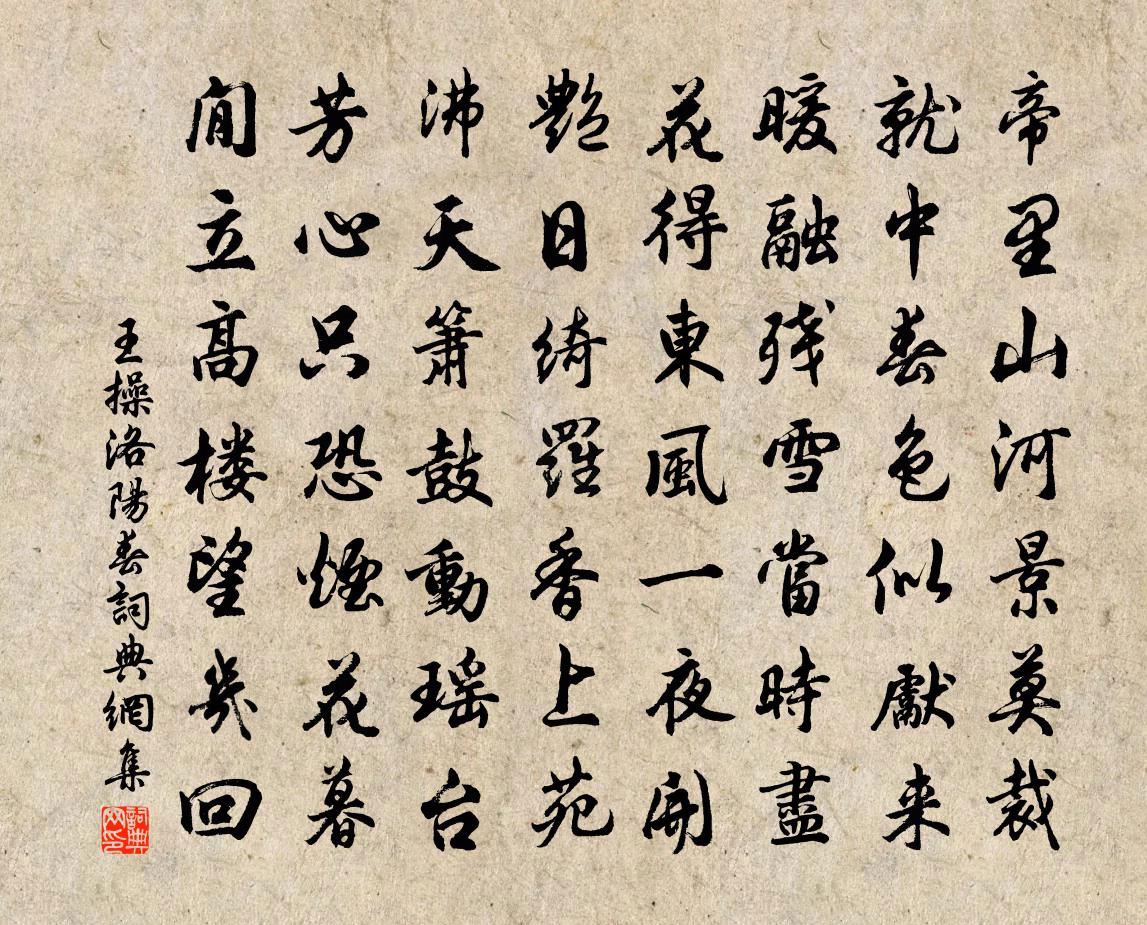 帝里山河景莫裁
就中春色似獻来
暖融残雪當時盡
花得東風一夜開
艷日綺羅香上苑
沸天簫鼓動瑶台
芳心只恐煙花暮
閒立高楼望幾回
王操洛陽春詞典網集
詞典网印